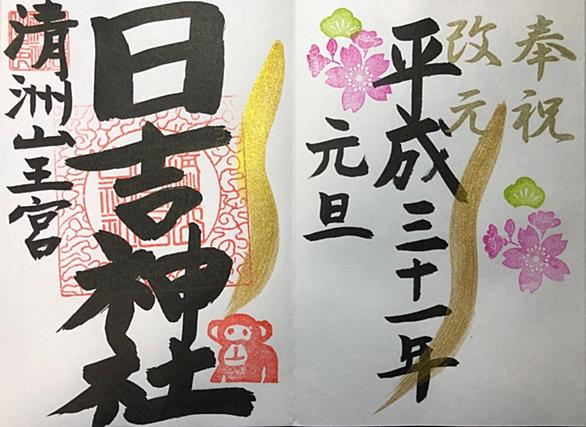 奉祝
改元
平成三十一年
元旦
日吉神社
清洲山王宮